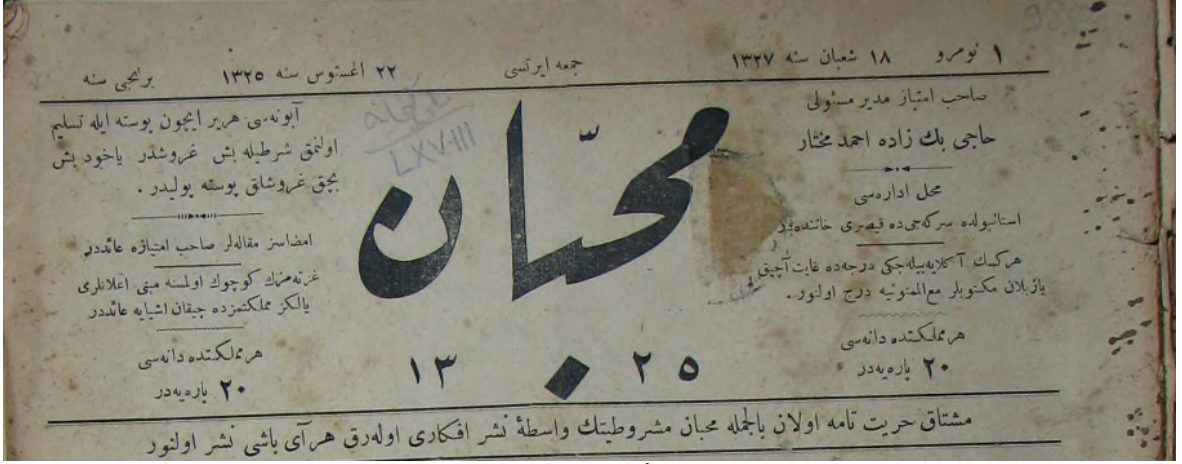 ١ نومرو ١٨ شعبان سنه ١٣٢٧ جمعه ایرتسی ٢٢ اغستوس سنه ١٣٢٥ برنجی سنه
صاحب امتیاز مدیر مسئولی
حاجی بك زاده احمد مختار
محل اداره‌سی
استانبولده سركه‌جی‌ده قیصری خاننده‌در
هركسك آكلایه‌بیله‌جكی درجه‌ده غایت آچیق
یازیلان مكتوبلر مع‌الممنونیه درج اولنور .
هر مملكتده دانه‌سی
٢٠ پاره‌یه‌در
محبّان
١٣ ٢٥
آبونه‌سی هر یر ایچون پوسته ایله تسلیم
اولنمق شرطیله بش غروشدر یاخود بش
بچق غروشلق پوسته پولیدر .
امضاسز مقاله‌لر صاحب امتیازه عائددر
غزته‌مزك كوچوك اولسنه مبنی اعلانلری
یالكز مملكتمزده چیقان اشیایه عائددر
هر مملكتده دانه‌سی
٢٠ پاره‌یه‌در
LXVIII
مشتاق حریت تامه اولان بالجمله محبان مشروطیتك واسطهٔ نشر افكاری اوله‌رق هر آی باشی نشر اولنور